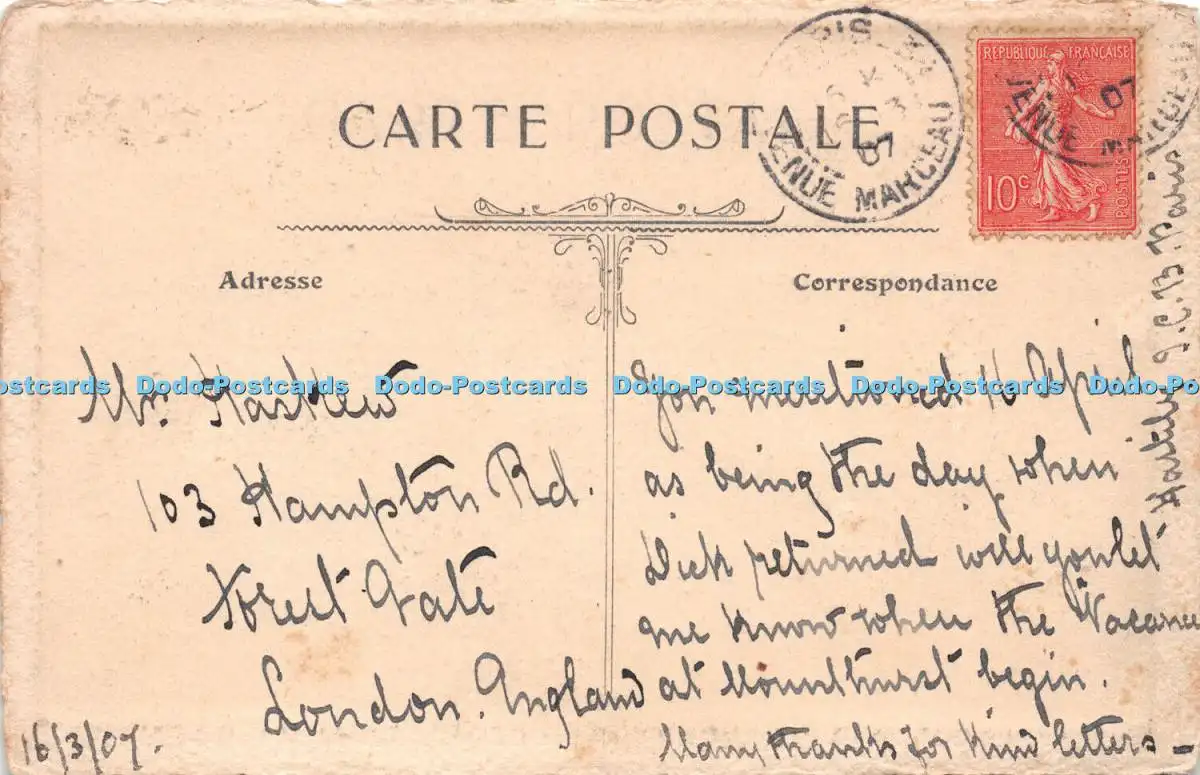 CARTE POSTALE
PARIS
AVENUE MARCEAU
07
REPUBLIQUE FRANÇAISE
10c
POSTES
07
MARCEAU
Adresse
Correspondance
Postcards Dodo-Postcards Dodo-Postcards Dodo-Postcards Dodo-Postcards Dodo-Postcards
Mr.
103 Hampton Rd.
Forest Gate
London. England
16/3/07.
You mentioned 16 April
as being the day when
Dick returned will you let
me know when the Vacance
at begin.
Many thanks for kind letters -
Paris